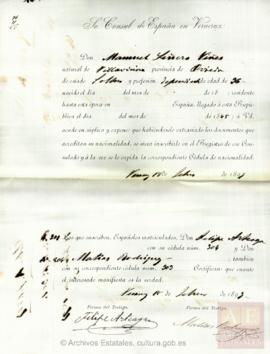 Sr. Consul de España en Veracruz
Don Manuel Piñero Viñes
natural de Villaviciosa, provincia de Oviedo
de estado Soltero y profesion dependiente edad de 26
en el dia del mes de de 18 residente
hasta esta época en España, llegado á este
el dia del mes de de 18 á Vd.
acude en súplica y expone que habiéndosele extraviado los documentos que
acreditan su nacionalidad, se sirva inscribirlo en el Registro de ese Con-
sulado y á la vez se le expida la correspondiente Cédula de nacionalidad.
Los que suscriben, Españoles matriculados, Don Felipe Arteaga
con su cédula núm. 304 y Don
Matias Rodriguez también
con su correspondiente cédula núm. 303 Certifican que cuanto
el interesado manifiesta es la verdad.
Firma del Testigo. Firma del Testigo.
Felipe Arteaga Matias
© Archivos Estatales, cultura.gob.es